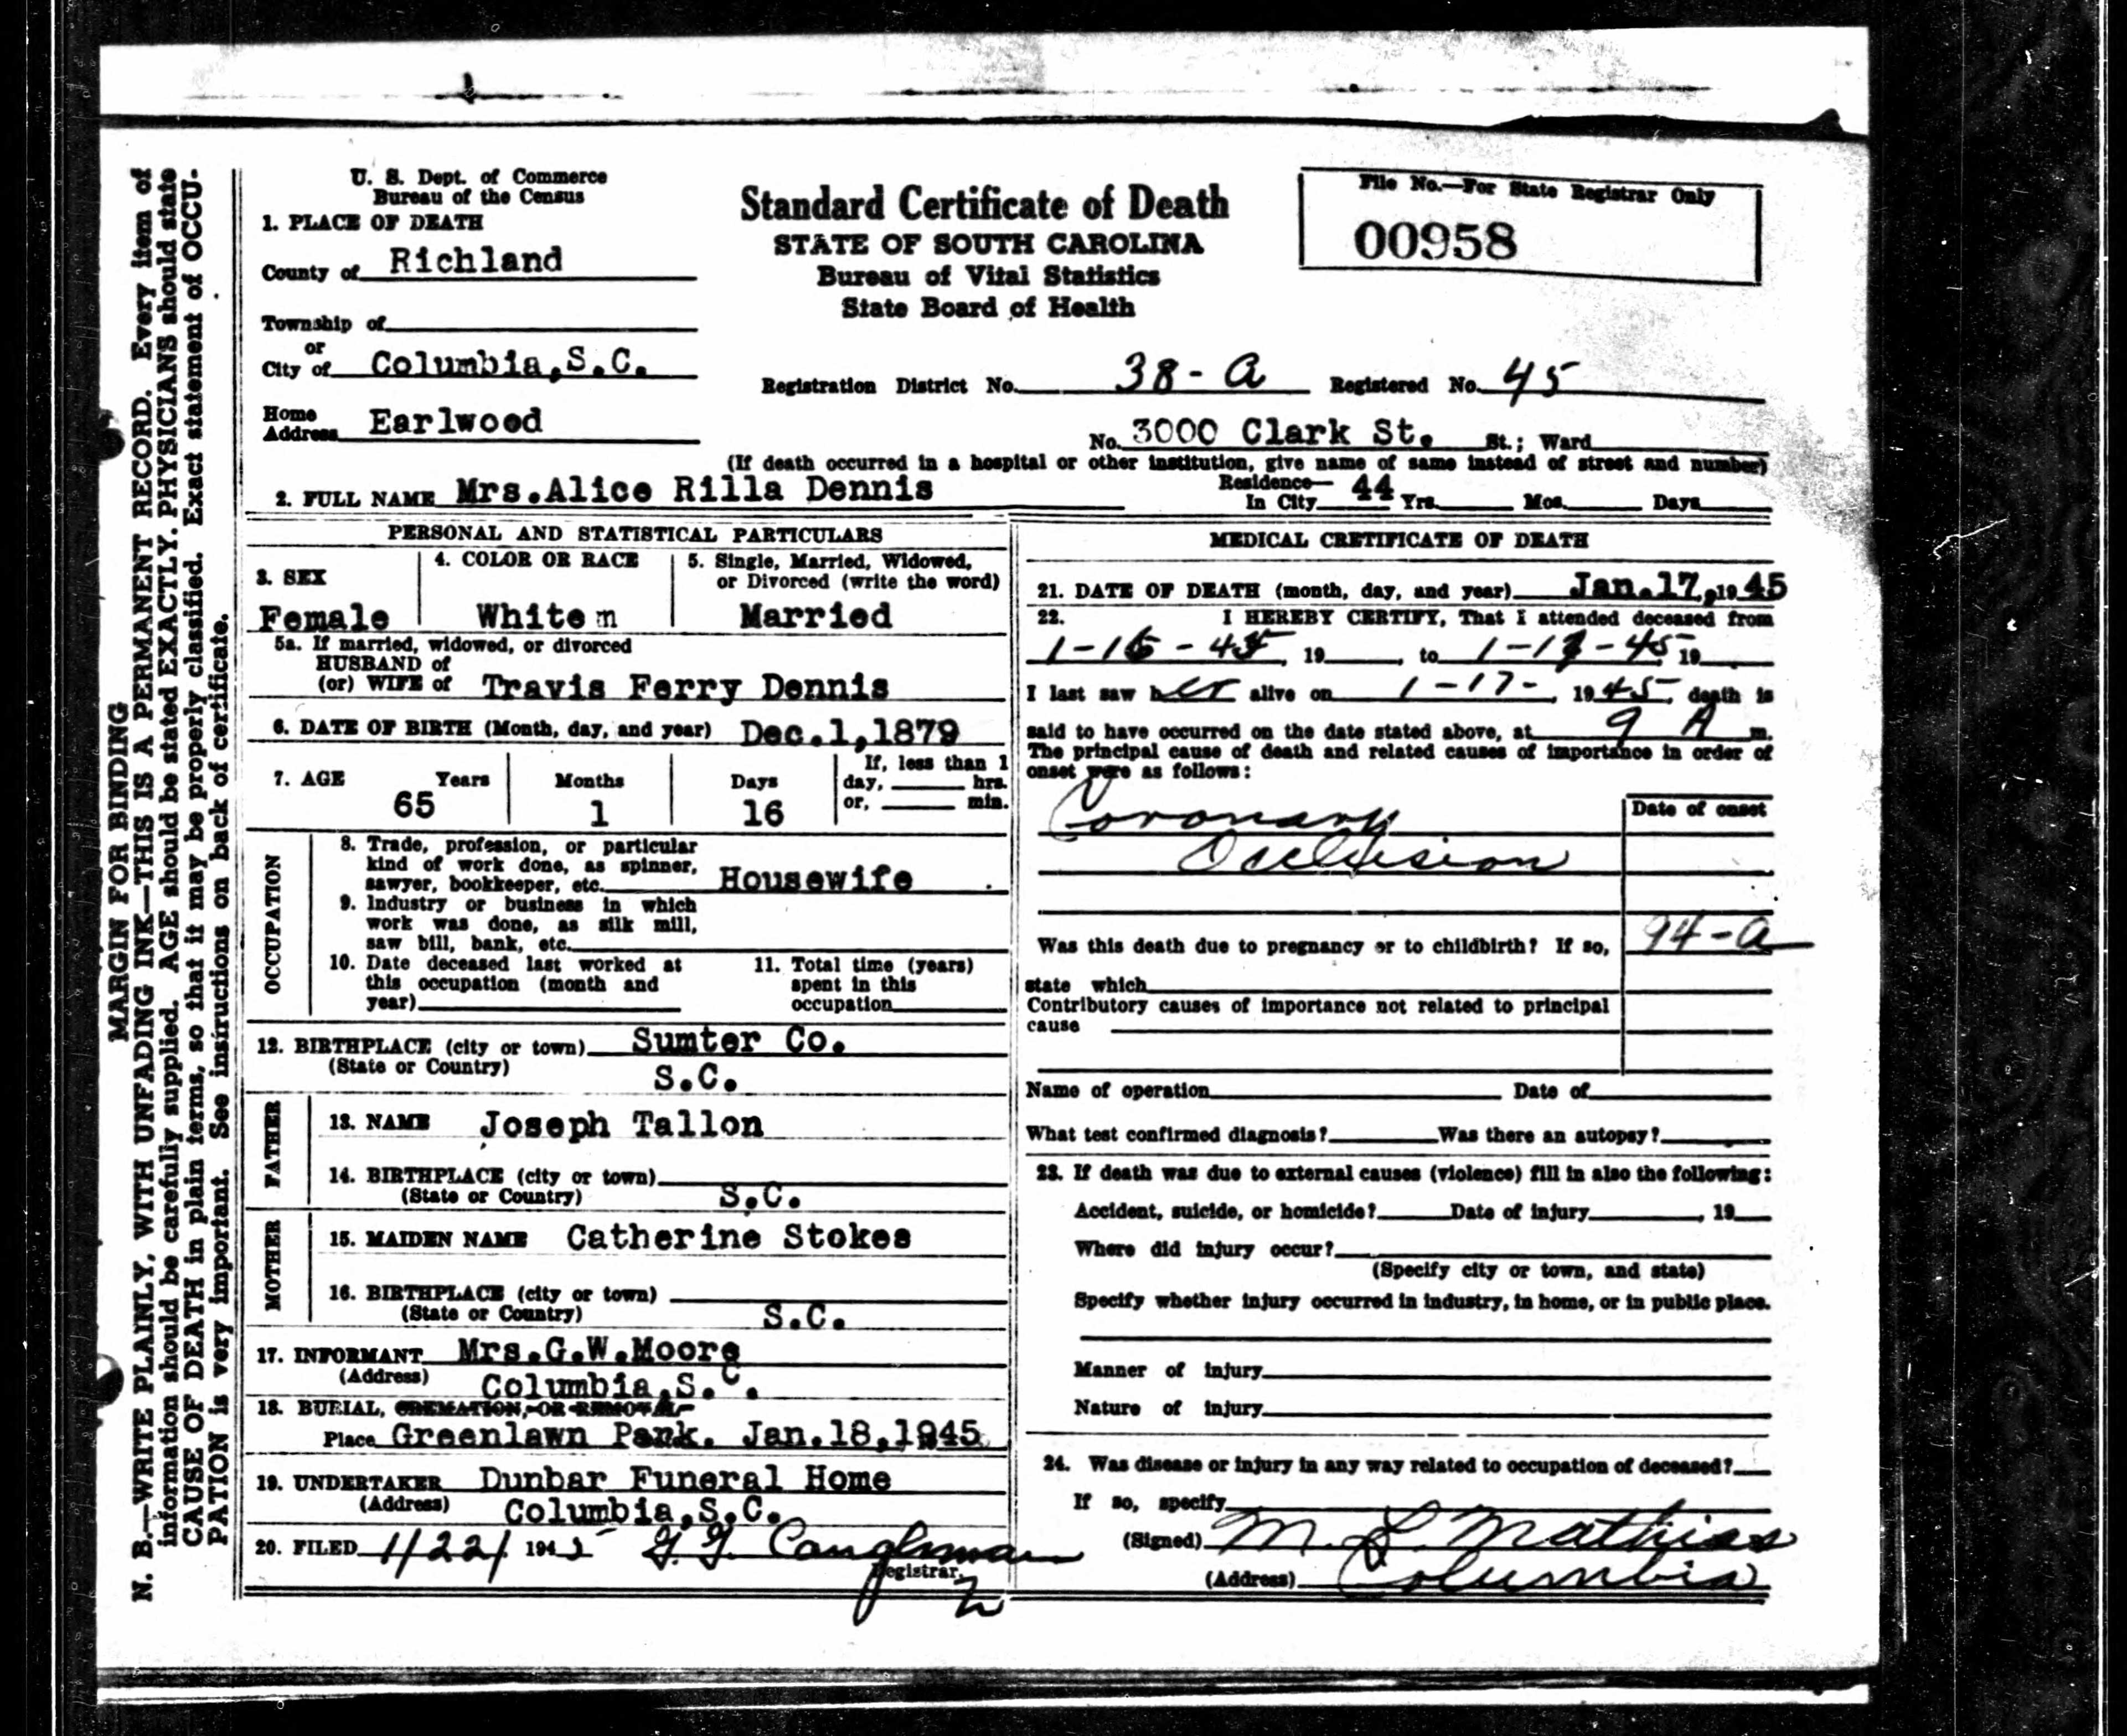 N. B.—WRITE PLAINLY, WITH UNFADING INK—THIS IS A PERMANENT RECORD. Every item of
information should be carefully supplied. AGE should be stated EXACTLY. PHYSICIANS should state
CAUSE OF DEATH in plain terms, so that it may be properly classified. Exact statement of OCCU-
PATION is very important. See instructions on back of certificate.
MARGIN FOR BINDING
U. S. Dept. of Commerce
Bureau of the Census
Standard Certificate of Death
STATE OF SOUTH CAROLINA
Bureau of Vital Statistics
State Board of Health
File No.—For State Registrar Only
00958
1. PLACE OF DEATH
County of Richland
Township of
or
City of Columbia,S.C.
Registration District No. 38-A Registered No. 45
Home
Address Earlwood
No. 3000 Clark St. St.; Ward
(If death occurred in a hospital or other institution, give name of same instead of street and number)
2. FULL NAME Mrs.Alice Rilla Dennis
Residence—
In City 44 Yrs. Mos. Days
PERSONAL AND STATISTICAL PARTICULARS
3. SEX
Female
4. COLOR OR RACE
White m
5. Single, Married, Widowed,
or Divorced (write the word)
Married
5a. If married, widowed, or divorced
HUSBAND of
(or) WIFE of Travis Ferry Dennis
6. DATE OF BIRTH (Month, day, and year) Dec.1,1879
7. AGE Years Months Days If, less than 1
day, hrs.
65 1 16 or, min.
OCCUPATION
8. Trade, profession, or particular
kind of work done, as spinner,
sawyer, bookkeeper, etc. Housewife
9. Industry or business in which
work was done, as silk mill,
saw bill, bank, etc.
10. Date deceased last worked at
this occupation (month and
year)
11. Total time (years)
spent in this
occupation
12. BIRTHPLACE (city or town) Sumter Co.
(State or Country) S.C.
FATHER
13. NAME Joseph Tallon
14. BIRTHPLACE (city or town)
(State or Country) S.C.
MOTHER
15. MAIDEN NAME Catherine Stokes
16. BIRTHPLACE (city or town)
(State or Country) S.C.
17. INFORMANT Mrs.G.W.Moore
(Address) Columbia,S.C.
18. BURIAL, CREMATION, OR REMOVAL
Place Greenlawn Park. Jan.18,1945
19. UNDERTAKER Dunbar Funeral Home
(Address) Columbia,S.C.
20. FILED 1/22/ 1945
Registrar.
MEDICAL CRETIFICATE OF DEATH
21. DATE OF DEATH (month, day, and year) Jan.17,1945
22. I HEREBY CERTIFY, That I attended deceased from
1-16-45, 19 , to 1-17-45 19
I last saw her alive on 1-17-, 1945, death is
said to have occurred on the date stated above, at 9 A m.
The principal cause of death and related causes of importance in order of
onset were as follows:
Date of onset
Coronary
Occlusion
94-a
Was this death due to pregnancy or to childbirth? If so,
state which
Contributory causes of importance not related to principal
cause
Name of operation Date of
What test confirmed diagnosis? Was there an autopsy?
23. If death was due to external causes (violence) fill in also the following:
Accident, suicide, or homicide? Date of injury , 19
Where did injury occur?
(Specify city or town, and state)
Specify whether injury occurred in industry, in home, or in public place.
Manner of injury
Nature of injury
24. Was disease or injury in any way related to occupation of deceased?
If so, specify
(Signed) M. L. Mathias
(Address) Columbia